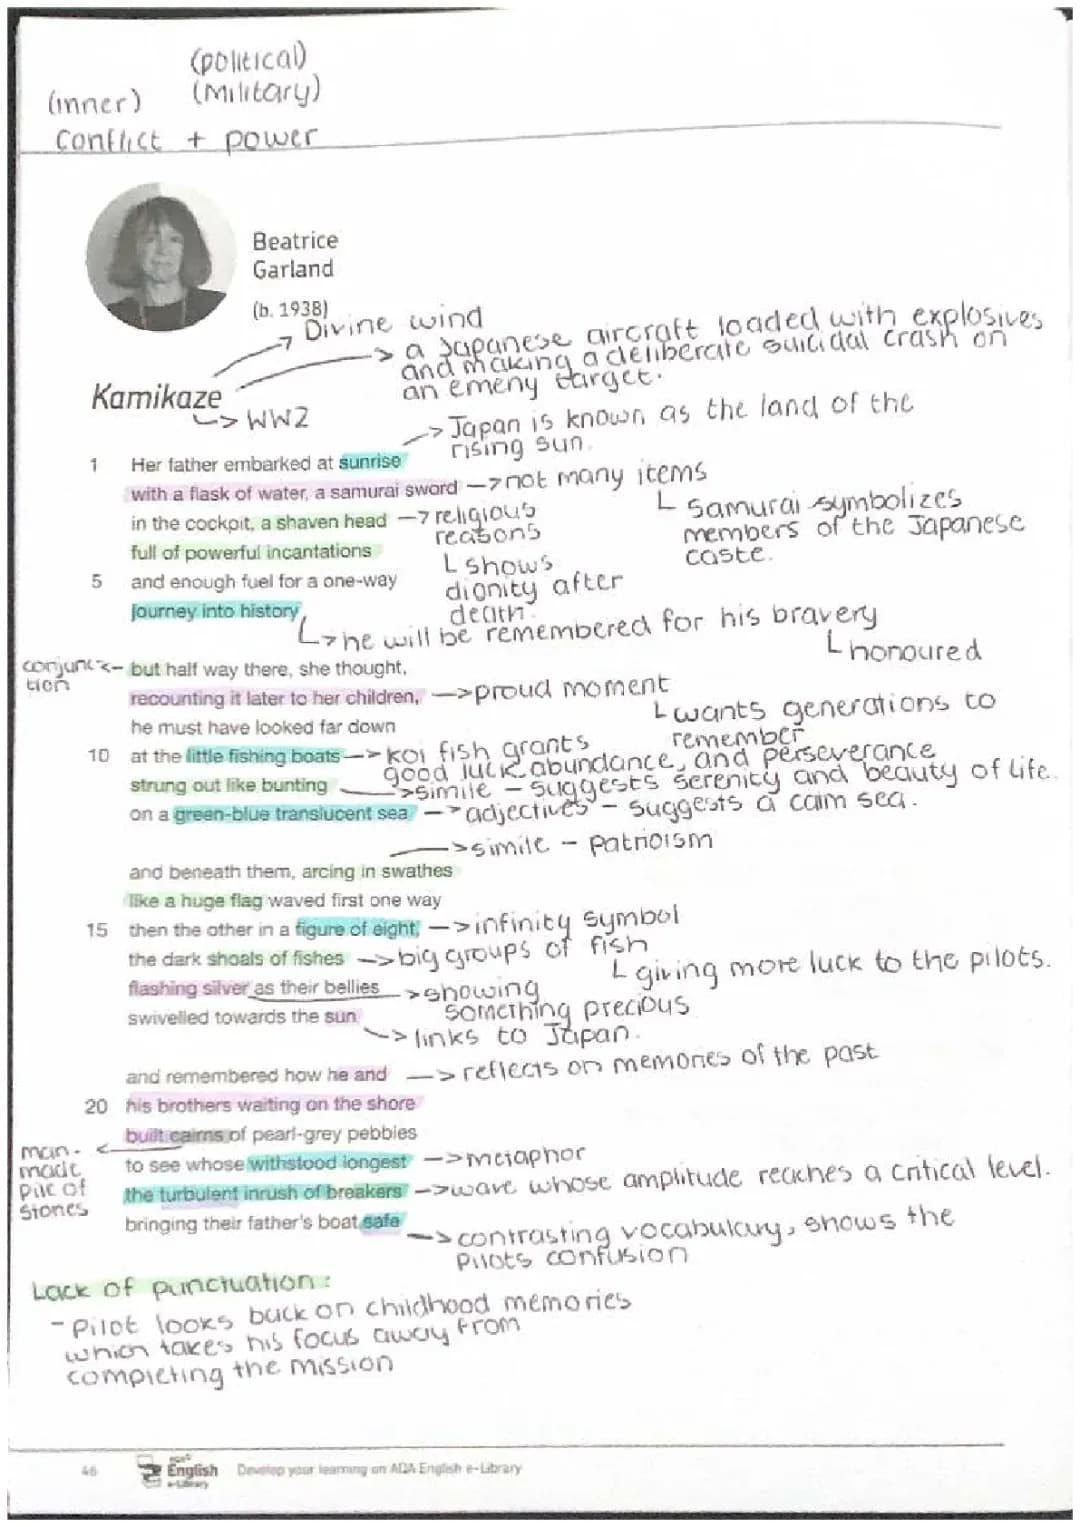 (political)
(inner) (Military)
Conflict + power
Beatrice
Garland
(b. 1938)
Divine wind
a Japanese aircraft loaded with explosives
and making a deliberate suicidal crash on
an emeny target.
Kamikaze
WW2
Japan is known as the land of the
rising sun.
1 Her father embarked at sunrise
with a flask of water, a samurai sword not many items
in the cockpit, a shaven head religious
reasons
Samurai symbolizes
members of the Japanese
caste.
full of powerful incantations
shows
dignity after
death.
5 and enough fuel for a one-way
journey into history
he will be remembered for his bravery
honoured
conjunc-
tion
but half way there, she thought,
recounting it later to her children, proud moment
wants generations to
remember
he must have looked far down
10 at the little fishing boats koi fish grants
good luck, abundance, and perseverance
strung out like bunting simile - suggests serenity and beauty of life.
on a green-blue translucent sea adjectives - suggests a calm sea.
simile - patrioism
and beneath them, arcing in swathes
like a huge flag waved first one way
15 then the other in a figure of eight, infinity symbol
the dark shoals of fishes big groups of fish
giving more luck to the pilots.
flashing silver as their bellies showing
something precious
swivelled towards the sun
links to Japan.
and remembered how he and reflects on memories of the past
20 his brothers waiting on the shore
built cairns of pearl-grey pebbles
man-
made
pile of
stones
to see whose withstood longest metaphor
the turbulent inrush of breakers wave whose amplitude reaches a critical level.
bringing their father's boat safe
contrasting vocabulary, shows the
pilots confusion
Lack of punctuation:
- Pilot looks back on childhood memories
which takes his focus away from
completing the mission
46 English Develop your learning on AQA English e-Library
e-Library